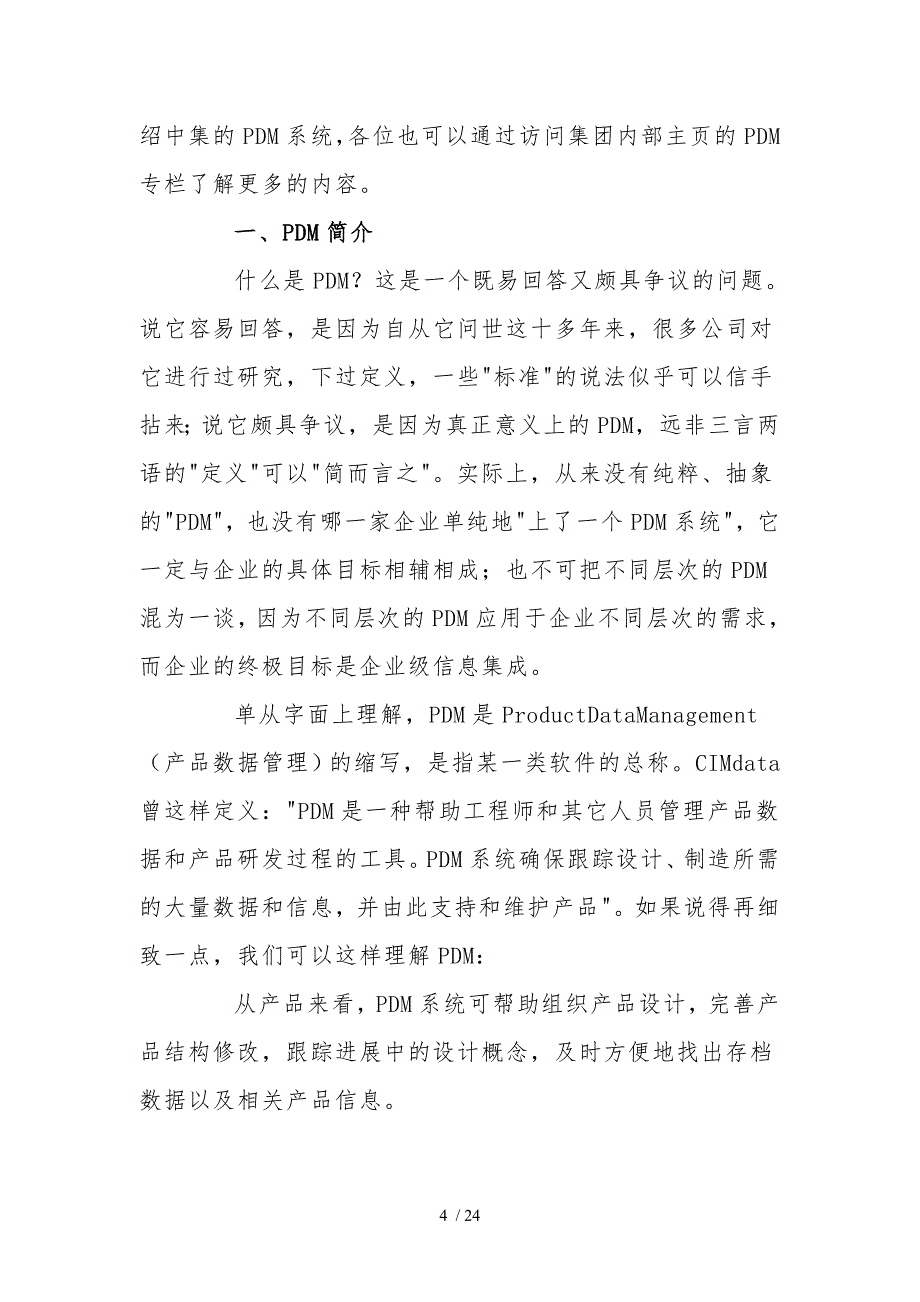 绍中集的 PDM 系统,各位也可以通过访问集团内部主页的 PDM
专栏了解更多的内容。
一、PDM 简介
什么是 PDM？这是一个既易回答又颇具争议的问题。
说它容易回答，是因为自从它问世这十多年来，很多公司对
它进行过研究，下过定义，一些"标准"的说法似乎可以信手
拈来；说它颇具争议，是因为真正意义上的 PDM，远非三言两
语的"定义"可以"简而言之"。实际上，从来没有纯粹、抽象
的"PDM"，也没有哪一家企业单纯地"上了一个 PDM 系统"，它
一定与企业的具体目标相辅相成；也不可把不同层次的 PDM
混为一谈，因为不同层次的 PDM 应用于企业不同层次的需求，
而企业的终极目标是企业级信息集成。
单从字面上理解，PDM 是 ProductDataManagement
（产品数据管理）的缩写，是指某一类软件的总称。CIMdata
曾这样定义："PDM 是一种帮助工程师和其它人员管理产品数
据和产品研发过程的工具。PDM 系统确保跟踪设计、制造所需
的大量数据和信息，并由此支持和维护产品"。如果说得再细
致一点，我们可以这样理解 PDM：
从产品来看，PDM 系统可帮助组织产品设计，完善产
品结构修改，跟踪进展中的设计概念，及时方便地找出存档
数据以及相关产品信息。
4 / 24